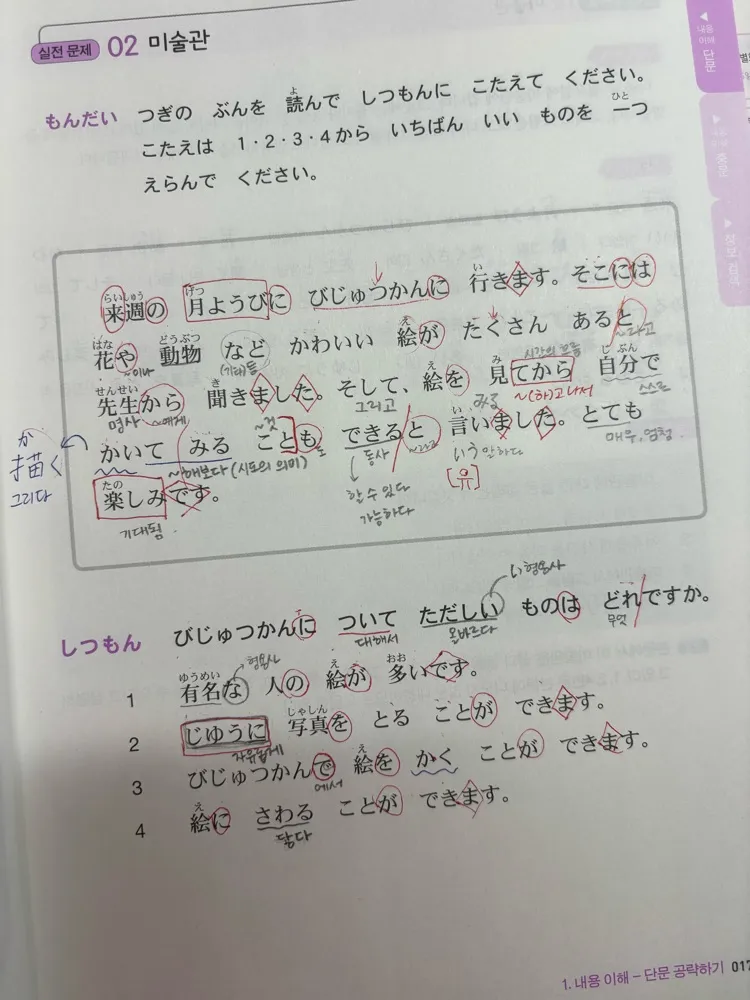 실전 문제 02 미술관
もんだい つぎの ぶんを 読んで しつもんに こたえて ください。
よ
こたえは 1・2・3・4から いちばん いい ものを 一つ
ひと
えらんで ください。
来週の 月ようびに びじゅつかんに 行きます。そこには
らいしゅう げつ い
花や 動物 など かわいい 絵が たくさん あると
はな どうぶつ え
~이나 (기타)등 ~라고
先生から 聞きました。そして、絵を 見てから 自分で
せんせい き え み じぶん
명사 ~에게 그리고 みる 시간의 흐름 ~(하)고 나서 스스로
かいて みる ことも できると 言いました。とても
い
~해보다 (시도의 의미) ~것 도 동사 ~라고 いう 말하다 매우, 엄청
か
描く
그리다
할 수 있다
가능하다
[유]
楽しみです。
たの
기대됨
しつもん びじゅつかんに ついて ただしい ものは どれですか。
대해서 올바르다 い형용사 무엇
1 有名な 人の 絵が 多いです。
ゆうめい え おお
형용사
2 じゆうに 写真を とる ことが できます。
しゃしん
자유롭게
3 びじゅつかんで 絵を かく ことが できます。
え
에서
4 絵に さわる ことが できます。
え
닿다
내용
이해
단문
중문
정보 검색
1. 내용 이해 – 단문 공략하기 017